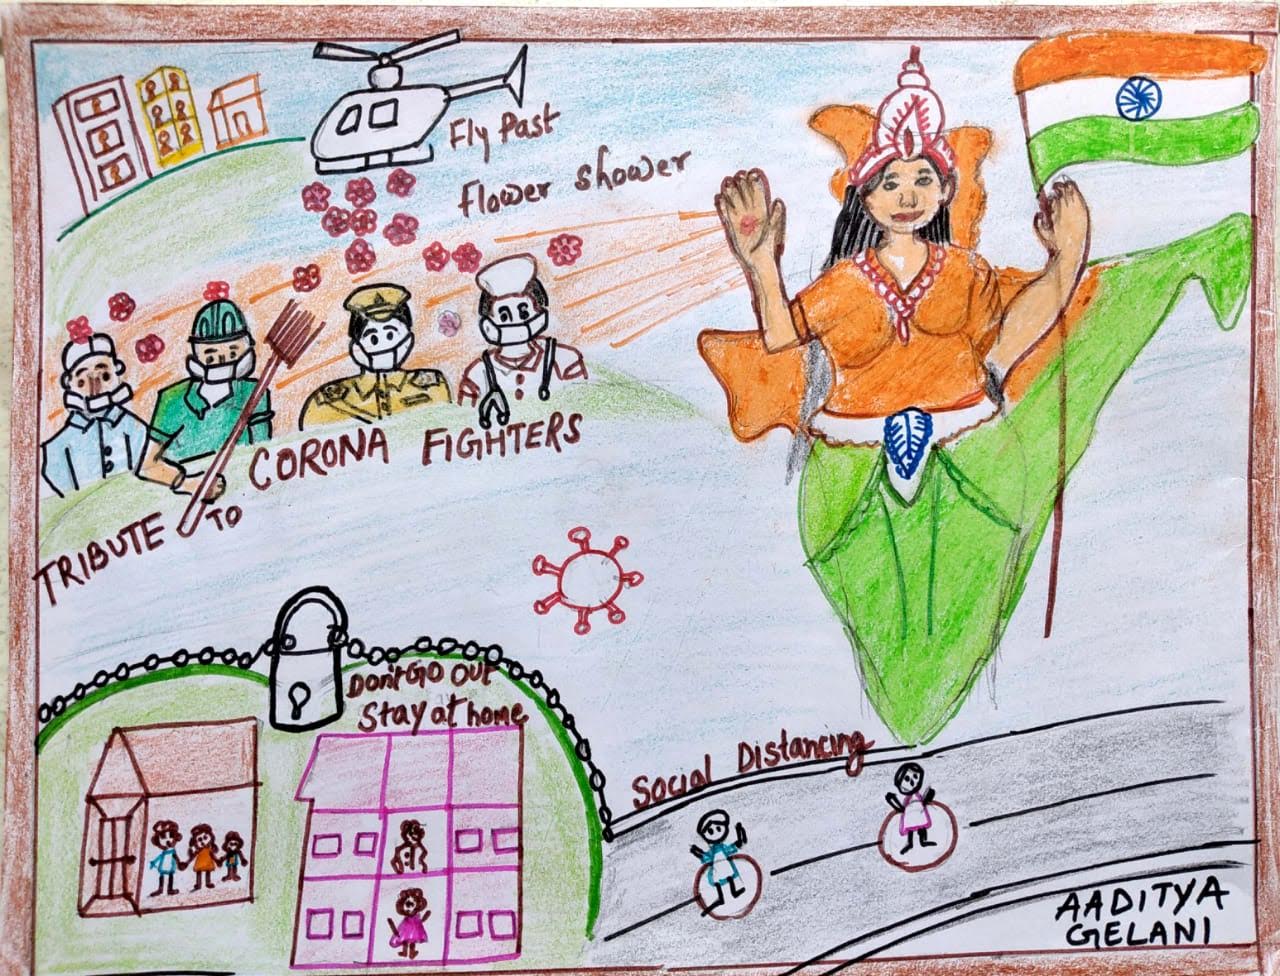 Fly Past
Flower shower
CORONA FIGHTERS
TRIBUTE TO
Don't GO OUT
Stay at home
Social Distancing
AADITYA
GELANI